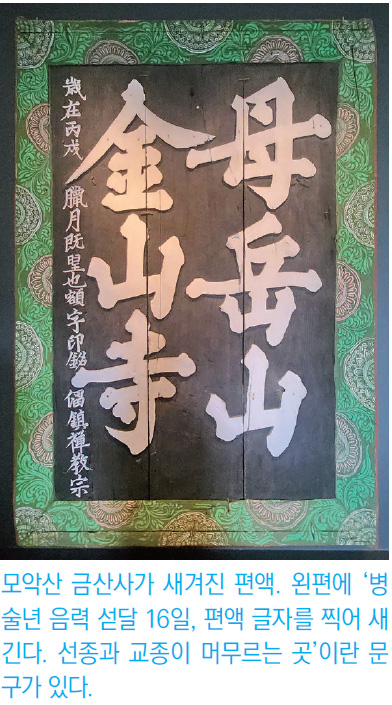 母岳山
金山寺
歲在丙戌 臘月既朢也額字印銘 鎮禪教宗
모악산 금산사가 새겨진 편액. 왼편에 ‘병
술년 음력 섣달 16일, 편액 글자를 찍어 새
긴다. 선종과 교종이 머무르는 곳’이란 문
구가 있다.